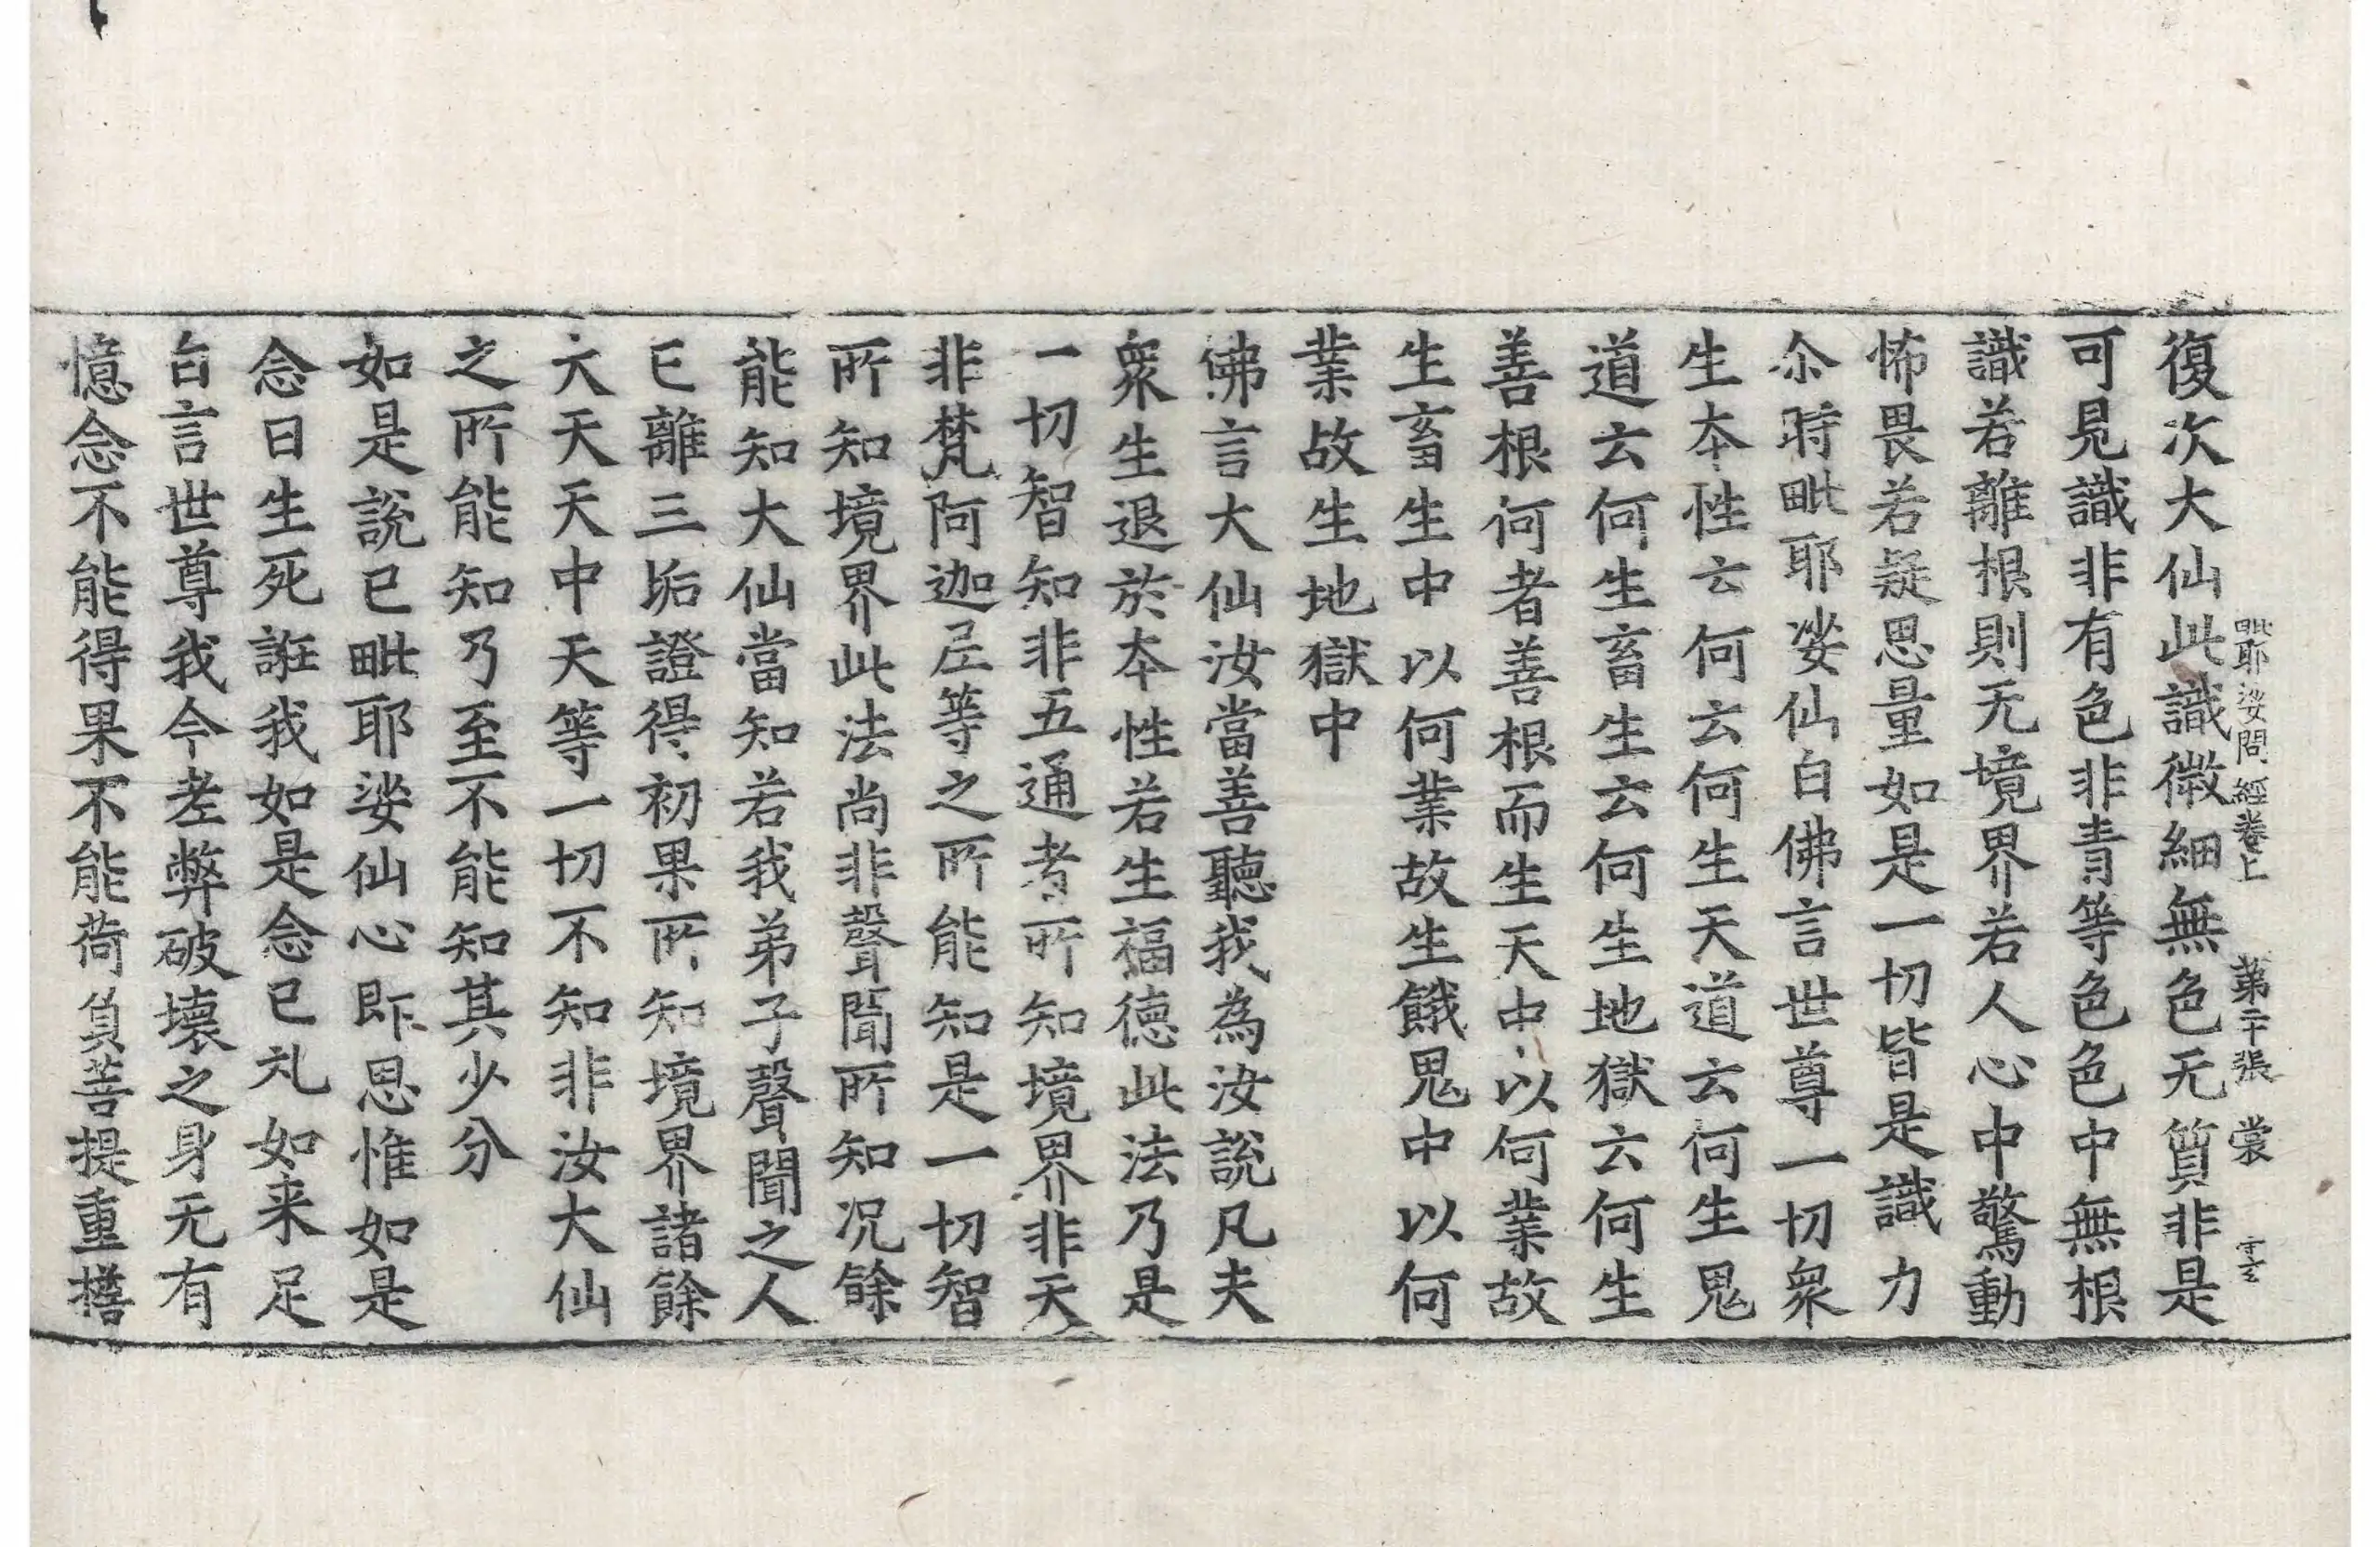 毗耶娑問經卷上　第二十張　裳
復次大仙此識微細無色无質非是
可見識非有色非青等色色中無根
識若離根則无境界若人心中驚動
怖畏若疑思量如是一切皆是識力
尒時毗耶娑仙白佛言世尊一切衆
生本性云何云何生天道云何生鬼
道云何生畜生云何生地獄云何生
善根何者善根而生天中以何業故
生畜生中以何業故生餓鬼中以何
業故生地獄中
佛言大仙汝當善聽我為汝說凡夫
衆生退於本性若生福德此法乃是
一切智知非五通者所知境界非天
非梵阿迦尼等之所能知是一切智
所知境界此法尚非聲聞所知況餘
能知大仙當知若我弟子聲聞之人
已離三垢證得初果所知境界諸餘
六天天中天等一切不知非汝大仙
之所能知乃至不能知其少分
如是說已毗耶娑仙心即思惟如是
念曰生死誑我如是念已礼如来足
白言世尊我今老弊破壞之身无有
憶念不能得果不能荷負菩提重擔